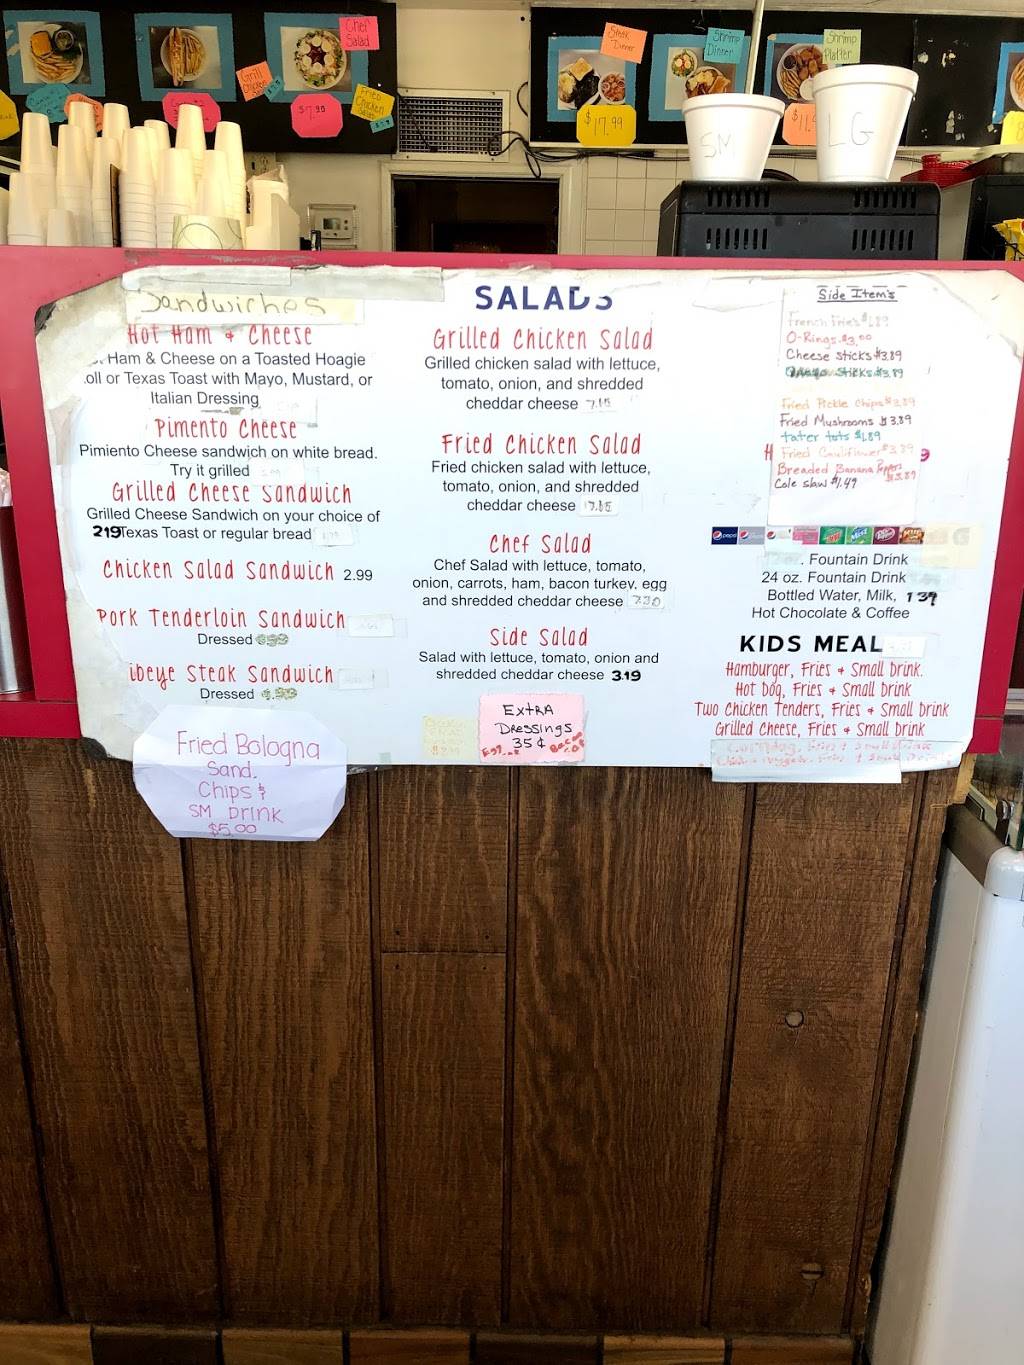 Chef
Salad
Grill
$7.99
Fried
Chicken
Salad
Steak
Dinner
$17.99
Shrimp
Dinner
Shrimp
Platter
SM
LG
Sandwiches
Hot Ham & Cheese
Ham & Cheese on a Toasted Hoagie
or Texas Toast with Mayo, Mustard, or
Italian Dressing
Pimento Cheese
Pimiento Cheese sandwich on white bread.
Try it grilled
Grilled Cheese Sandwich
Grilled Cheese Sandwich on your choice of
219 Texas Toast or regular bread
Chicken Salad Sandwich 2.99
Pork Tenderloin Sandwich
Dressed
Steak Sandwich
Dressed 4.99
Fried Bologna
Sand.
Chips &
SM Drink
$5.00
SALADS
Grilled Chicken Salad
Grilled chicken salad with lettuce,
tomato, onion, and shredded
cheddar cheese
Fried Chicken Salad
Fried chicken salad with lettuce,
tomato, onion, and shredded
cheddar cheese
Chef Salad
Chef Salad with lettuce, tomato,
onion, carrots, ham, bacon turkey, egg
and shredded cheddar cheese
Side Salad
Salad with lettuce, tomato, onion and
shredded cheddar cheese 3.19
Extra
Dressings
35¢
Side Item's
French Fries $1.89
O-Rings $3.00
Cheese sticks $3.89
sticks $3.89
Fried Pickle Chips $3.89
Fried Mushrooms $3.89
tater tots $1.89
Fried Cauliflower $3.89
Breaded Banana Peppers
$3.89
Cole slaw $1.49
pepsi
. Fountain Drink
24 oz. Fountain Drink
Bottled Water, Milk, 139
Hot Chocolate & Coffee
KIDS MEAL
Hamburger, Fries & Small Drink.
Hot Dog, Fries & Small Drink
Two Chicken Tenders, Fries & Small Drink
Grilled Cheese, Fries & Small Drink